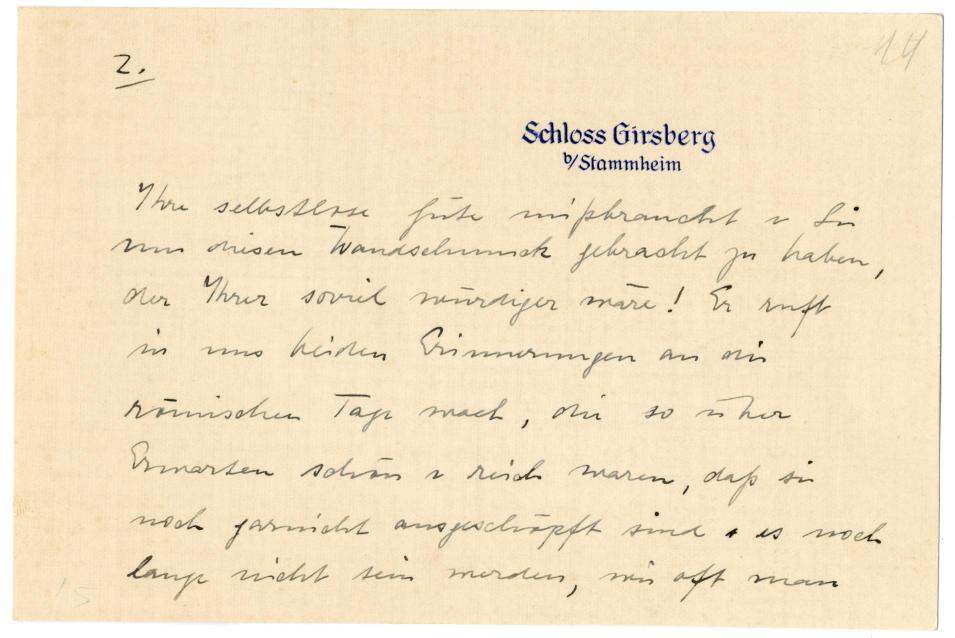 2.
14
Schloss Girsberg
b/Stammheim
Ihre selbstlose Güte mißbraucht u Sie
um diesen Wandschmuck gebracht zu haben,
der Ihrer soviel würdiger wäre! Er ruft
in uns beiden Erinnerungen an die
römischen Tage wach, die so über
Erwarten schön u reich waren, daß sie
noch garnicht ausgeschöpft sind u es noch
lange nicht sein werden, wie oft man